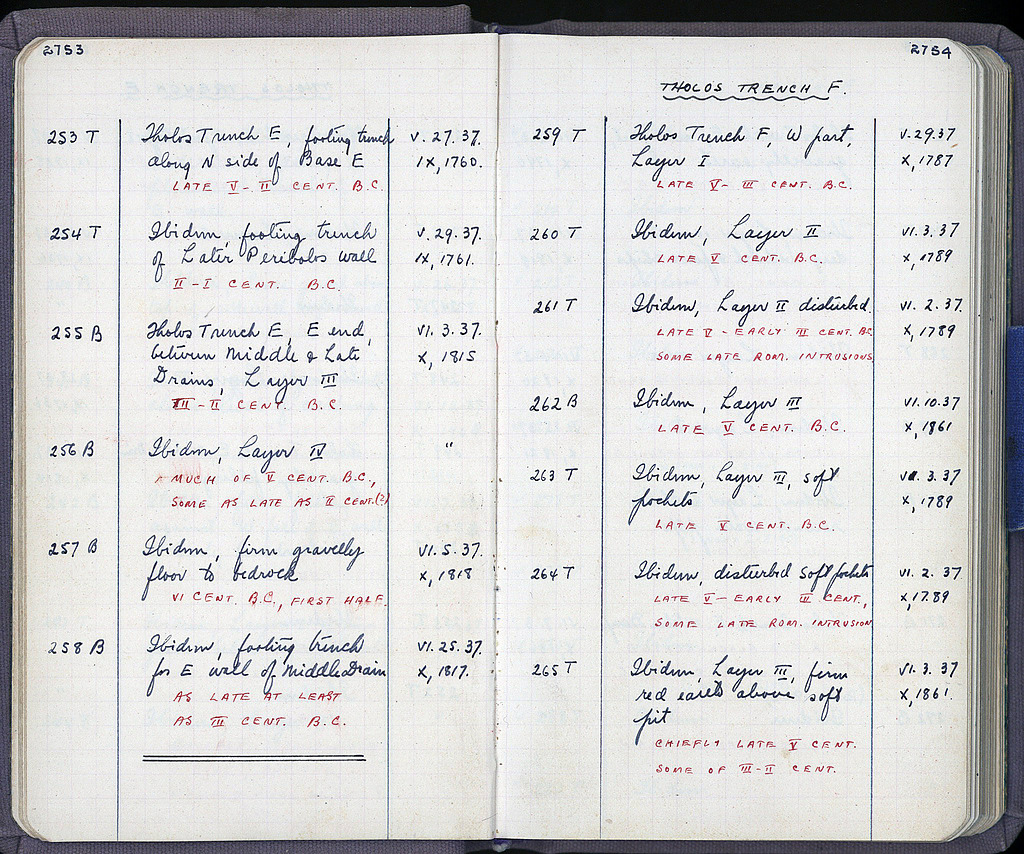 2753
253 T Tholos Trench E, footing trench V. 27. 37.
along N side of Base E IX, 1760.
LATE V - II CENT. B.C.
254 T Ibidem, footing trench V. 29. 37.
of Later Peribolos wall IX, 1761.
II - I CENT. B.C.
255 B Tholos Trench E, E end, VI. 3. 37.
between Middle & Late X, 1815
Drains, Layer III
III - II CENT. B.C.
256 B Ibidem, Layer IV "
MUCH OF V CENT. B.C.,
SOME AS LATE AS II CENT.(?)
257 B Ibidem, firm gravelly VI. 5. 37.
floor to bedrock X, 1818
VI CENT. B.C., FIRST HALF.
258 B Ibidem, footing trench VI. 25. 37.
for E wall of Middle Drain X, 1817.
AS LATE AT LEAST
AS III CENT. B.C.
2754
THOLOS TRENCH F.
259 T Tholos Trench F, W part, V. 29. 37
Layer I X, 1787
LATE V - III CENT. B.C.
260 T Ibidem, Layer II VI. 3. 37
LATE V CENT. B.C. X, 1789
261 T Ibidem, Layer II disturbed. VI. 2. 37.
LATE V - EARLY III CENT. BC X, 1789
SOME LATE ROM. INTRUSIONS
262 B Ibidem, Layer III VI. 10. 37
LATE V CENT. B.C. X, 1861
263 T Ibidem, Layer III, soft VI. 3. 37
pockets X, 1789
LATE V CENT. B.C.
264 T Ibidem, disturbed soft pockets VI. 2. 37
LATE V - EARLY III CENT., X, 1789
SOME LATE ROM. INTRUSION
265 T Ibidem, Layer III, firm VI. 3. 37
red earth above soft X, 1861.
pit
CHIEFLY LATE V CENT.
SOME OF III - II CENT.